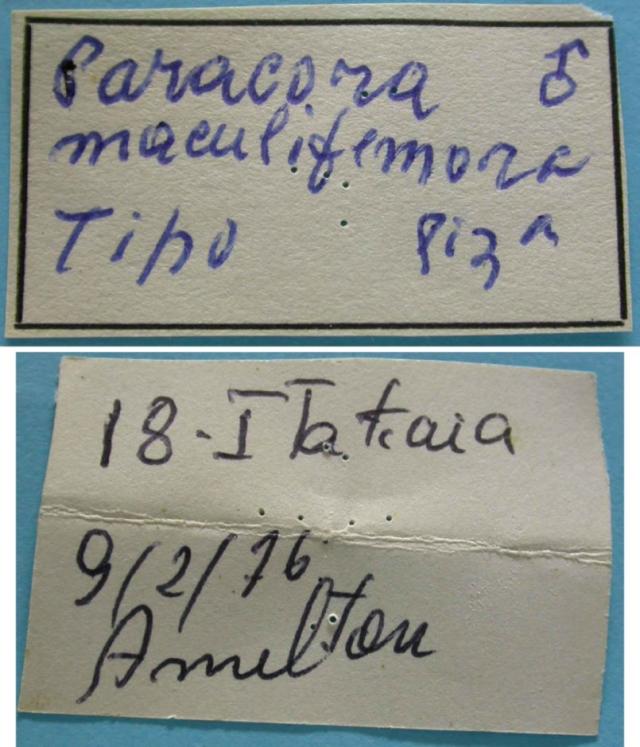 Paracora ♂
maculifemora
Tipo Piza
18-Itatiaia
9/2/76
Amelton